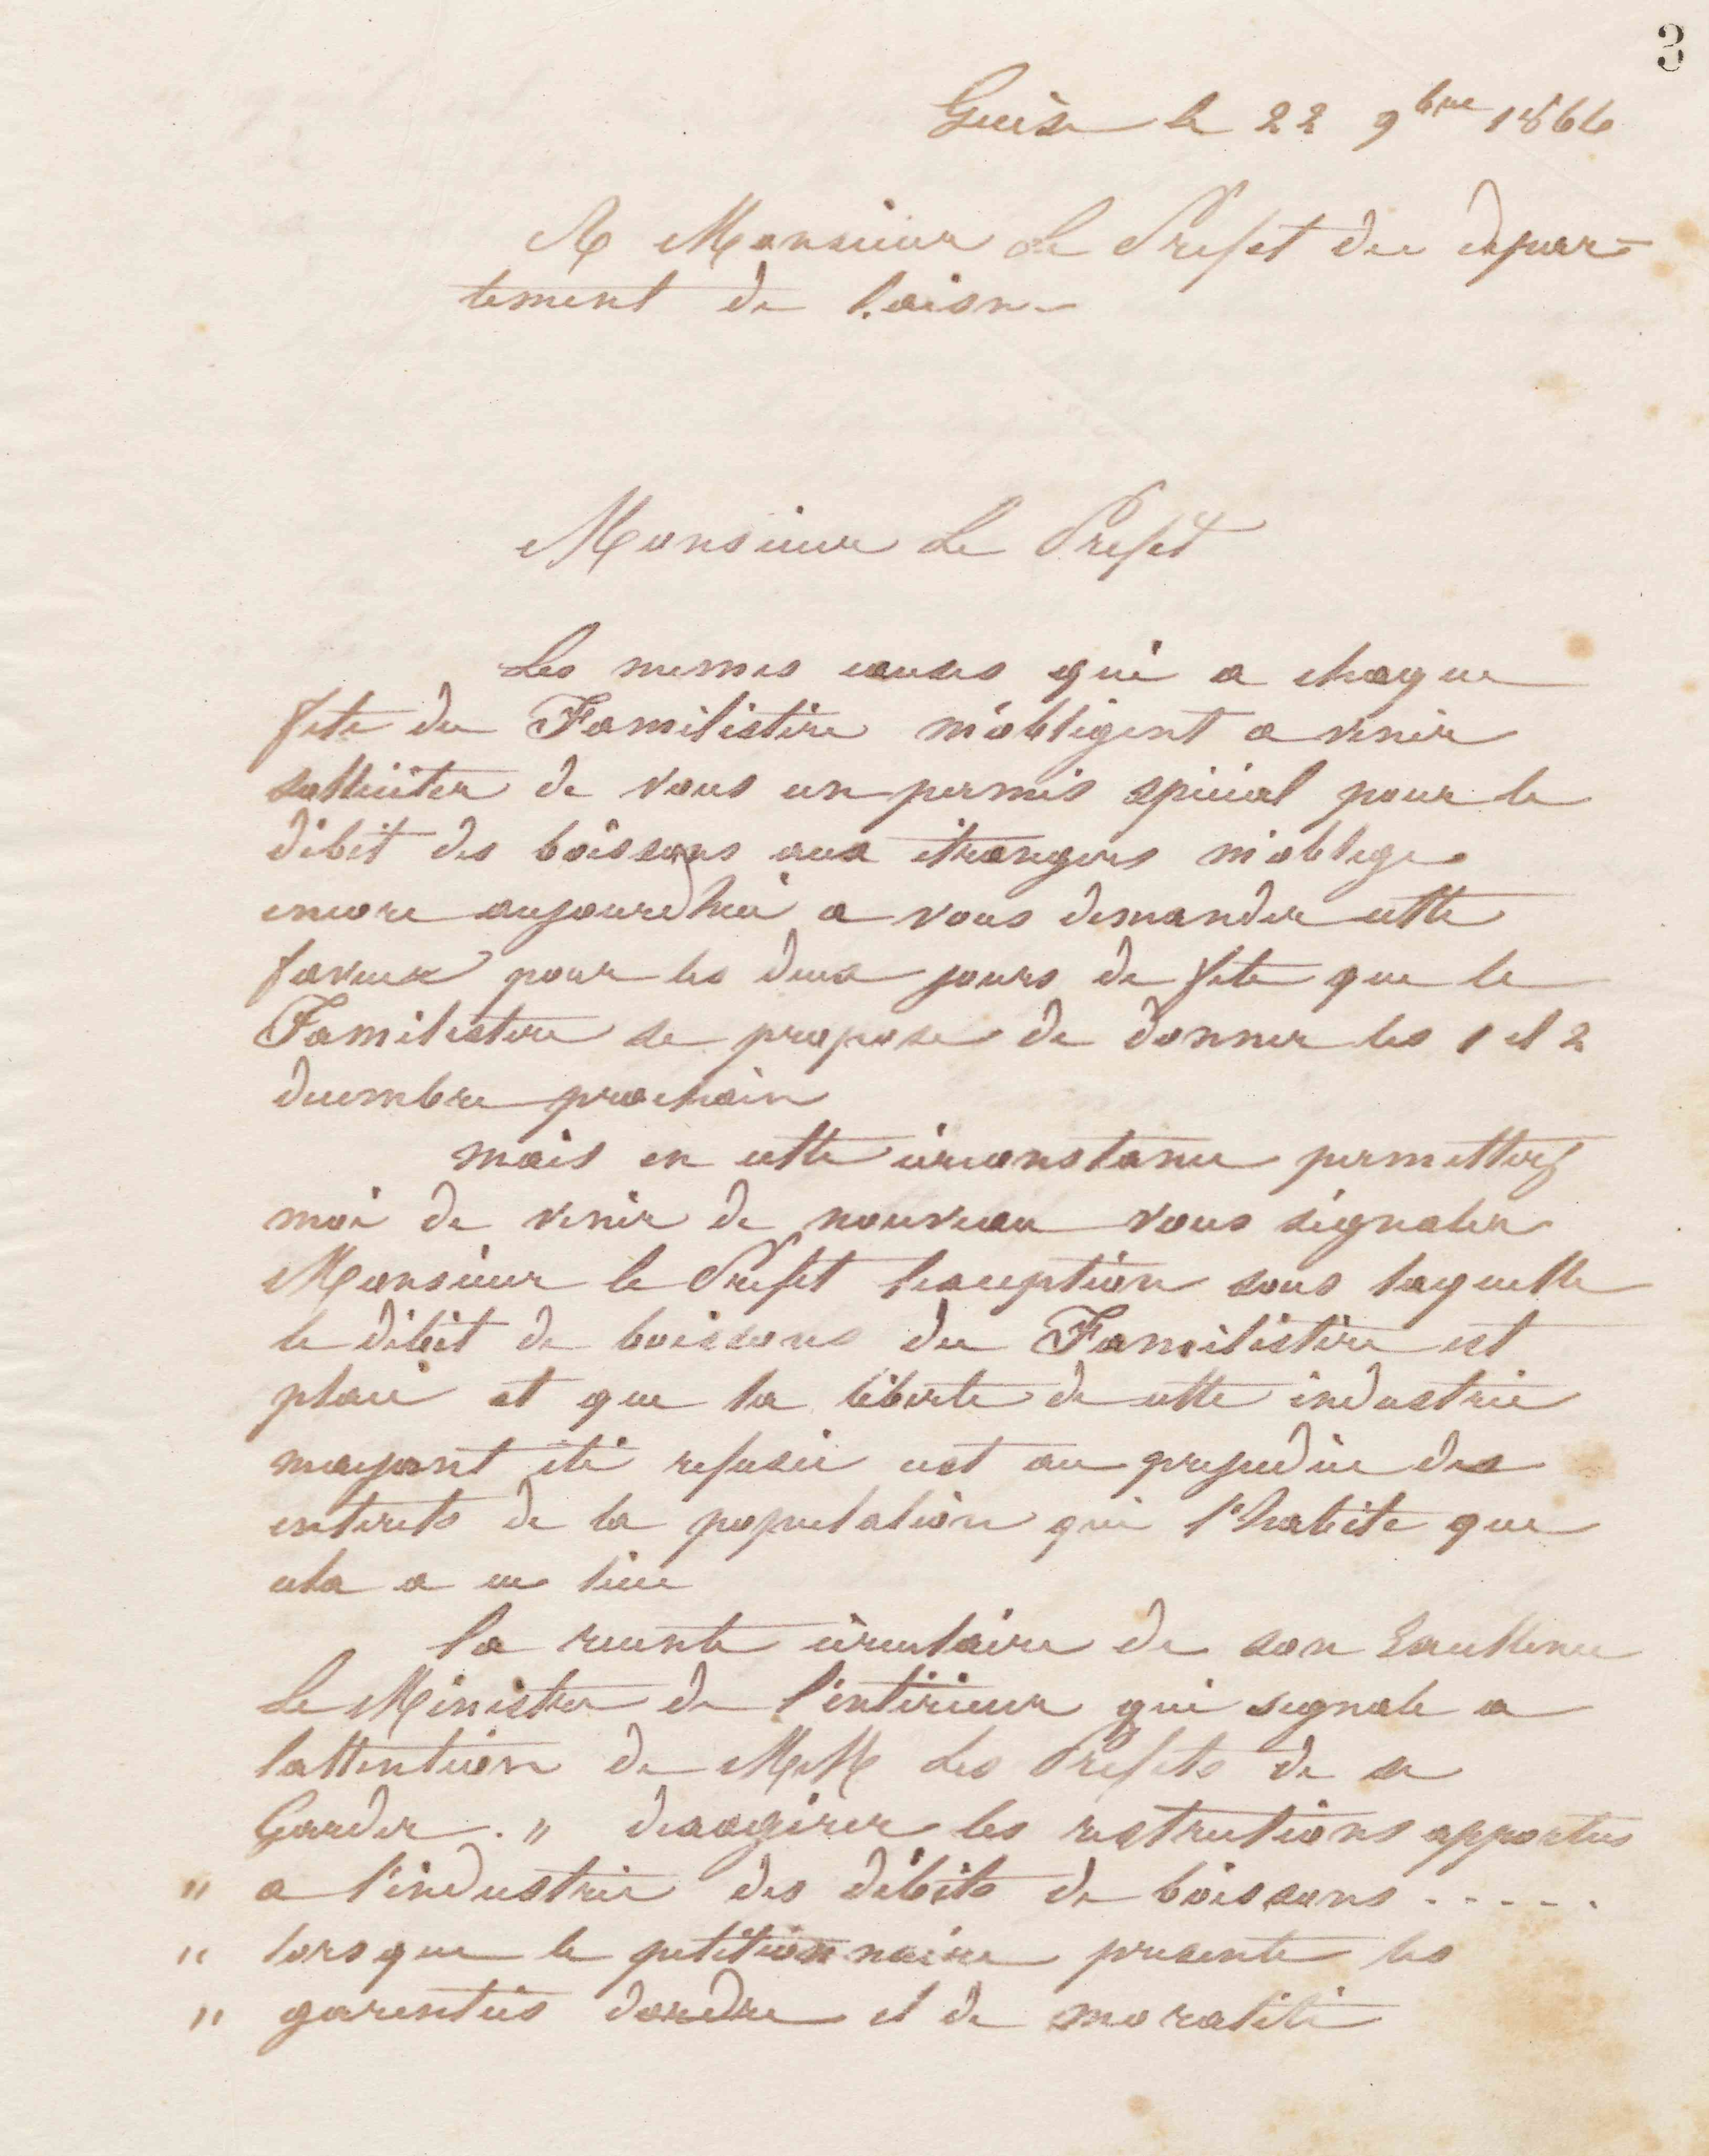 3
Guise le 22 9bre 1866
A Monsieur Le Prefet du depar-
tement de l'aisne
Monsieur Le Prefet
Les memes causes qui a chaque
fete du Familistère m'obligent a venir
solliciter de vous un permis spécial pour le
débit des boissons aux étrangers m'oblige
encore aujourdhui a vous demander cette
faveur pour les deux jours de fete que le
Familistere se propose de donner les 1 et 2
decembre prochain
mais en cette circonstance permettez
moi de venir de nouveau vous signaler
Monsieur le Prefet lexception sous laquelle
le débit de boissons du Familistère est
placé et que la liberte de cette industrie
mayant été refusée cest au prejudice des
enterets de la population qui l'habite que
cela a eu lieu
la recente circulaire de son Excellence
Le Ministre de l'intérieur qui segnale a
lattention de MM Les Prefets de se
Garder . " dexagérer les restrictions apportees
" a l'industrie des débits de boissons .....
" lorsque le petitionnaire presente les
" garenties dordre et de moralité